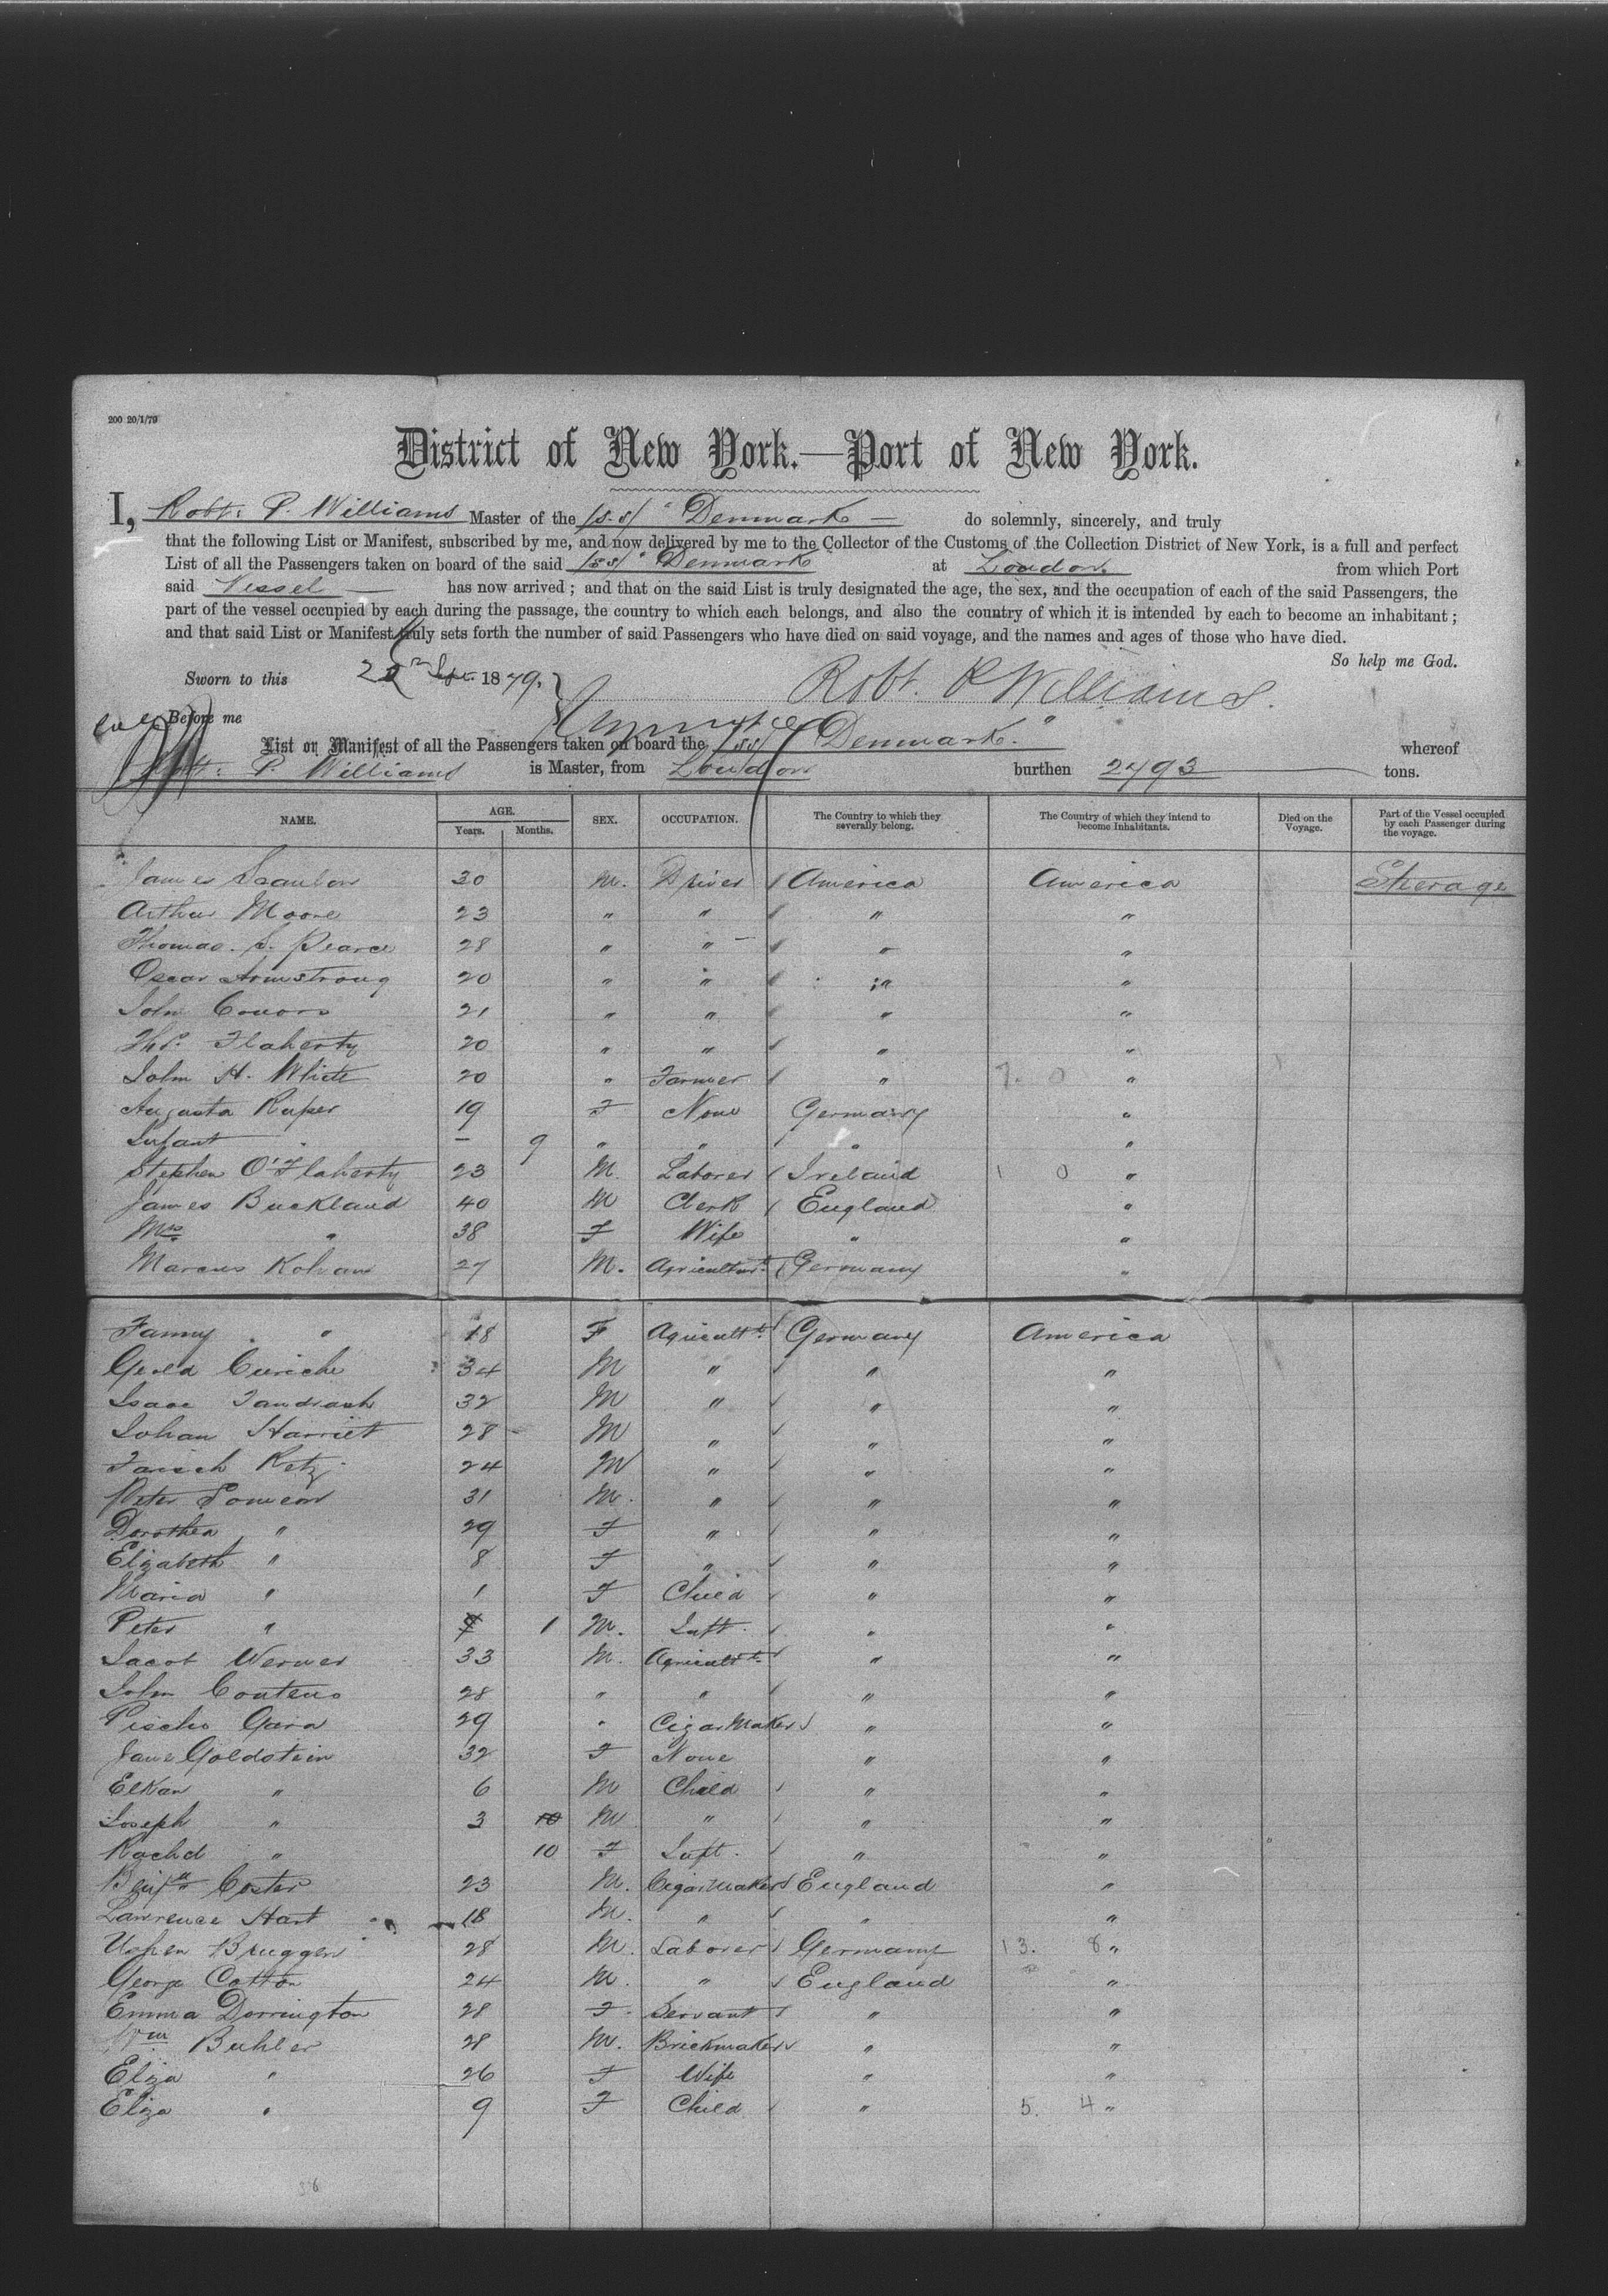 200 20/1/79
District of New York.—Port of New York.
I, Robt: P. Williams Master of the (s.s) "Denmark — do solemnly, sincerely, and truly
that the following List or Manifest, subscribed by me, and now delivered by me to the Collector of the Customs of the Collection District of New York, is a full and perfect
List of all the Passengers taken on board of the said (ss) "Denmark at London from which Port
said Vessel — has now arrived; and that on the said List is truly designated the age, the sex, and the occupation of each of the said Passengers, the
part of the vessel occupied by each during the passage, the country to which each belongs, and also the country of which it is intended by each to become an inhabitant;
and that said List or Manifest truly sets forth the number of said Passengers who have died on said voyage, and the names and ages of those who have died.
So help me God.
Sworn to this Sept. 1879. Robt. P Williams.
Before me
List or Manifest of all the Passengers taken on board the (ss) "Denmark." whereof
Robt: P. Williams is Master, from London burthen 2793 tons.
NAME. AGE. Years. Months. SEX. OCCUPATION. The Country to which they severally belong. The Country of which they intend to become Inhabitants. Died on the Voyage. Part of the Vessel occupied by each Passenger during the voyage.
James Scanlon 30 M. Driver America America Steerage
Arthur Moore 23 " " " "
Thomas. S. Pearce 28 " " " "
Oscar Armstrong 20 " " " "
John Conors 21 " " " "
Thos. Flaherty 20 " " " "
John H. White 20 " Farmer " 7. 0 "
Augusta Ruper 19 F None Germany "
Infant — 9 " " " "
Stephen O'Flaherty 23 M. Laborer Ireland 1 0 "
James Buckland 40 M Clerk England "
Mrs " 38 F Wife " "
Marcus 27 M. Agricultur Germany "
Fanny " 18 F Agricultr. Germany America
34 M " " "
Isaac 32 M " " "
Johan Harriet 28 M " " "
Retz 24 M " " "
Peter 31 M. " " "
Dorothea " 29 F " " "
Elizabeth " 8 F " " "
Maria " 1 F Child " "
Peter " 1 M. Inft. " "
Jacob Werner 33 M. Agricultr. " "
John Contens 28 " " " "
29 " Cigar Maker " "
Jane Goldstein 32 F None " "
Elkan " 6 M Child " "
Joseph " 3 10 M " " "
Rachel " 10 F Inft. " "
Benjn Coster 23 M. Cigar Maker England "
Lawrence Hart 18 M. " " "
Bruggen 28 M. Laborer Germany 13. 8 "
George Cotton 24 M. " England "
Emma Dorrington 28 F. Servant " "
Wm Buhler 28 M. Brickmaker " "
Eliza " 26 F Wife " "
Eliza " 9 F Child " 5. 4 "